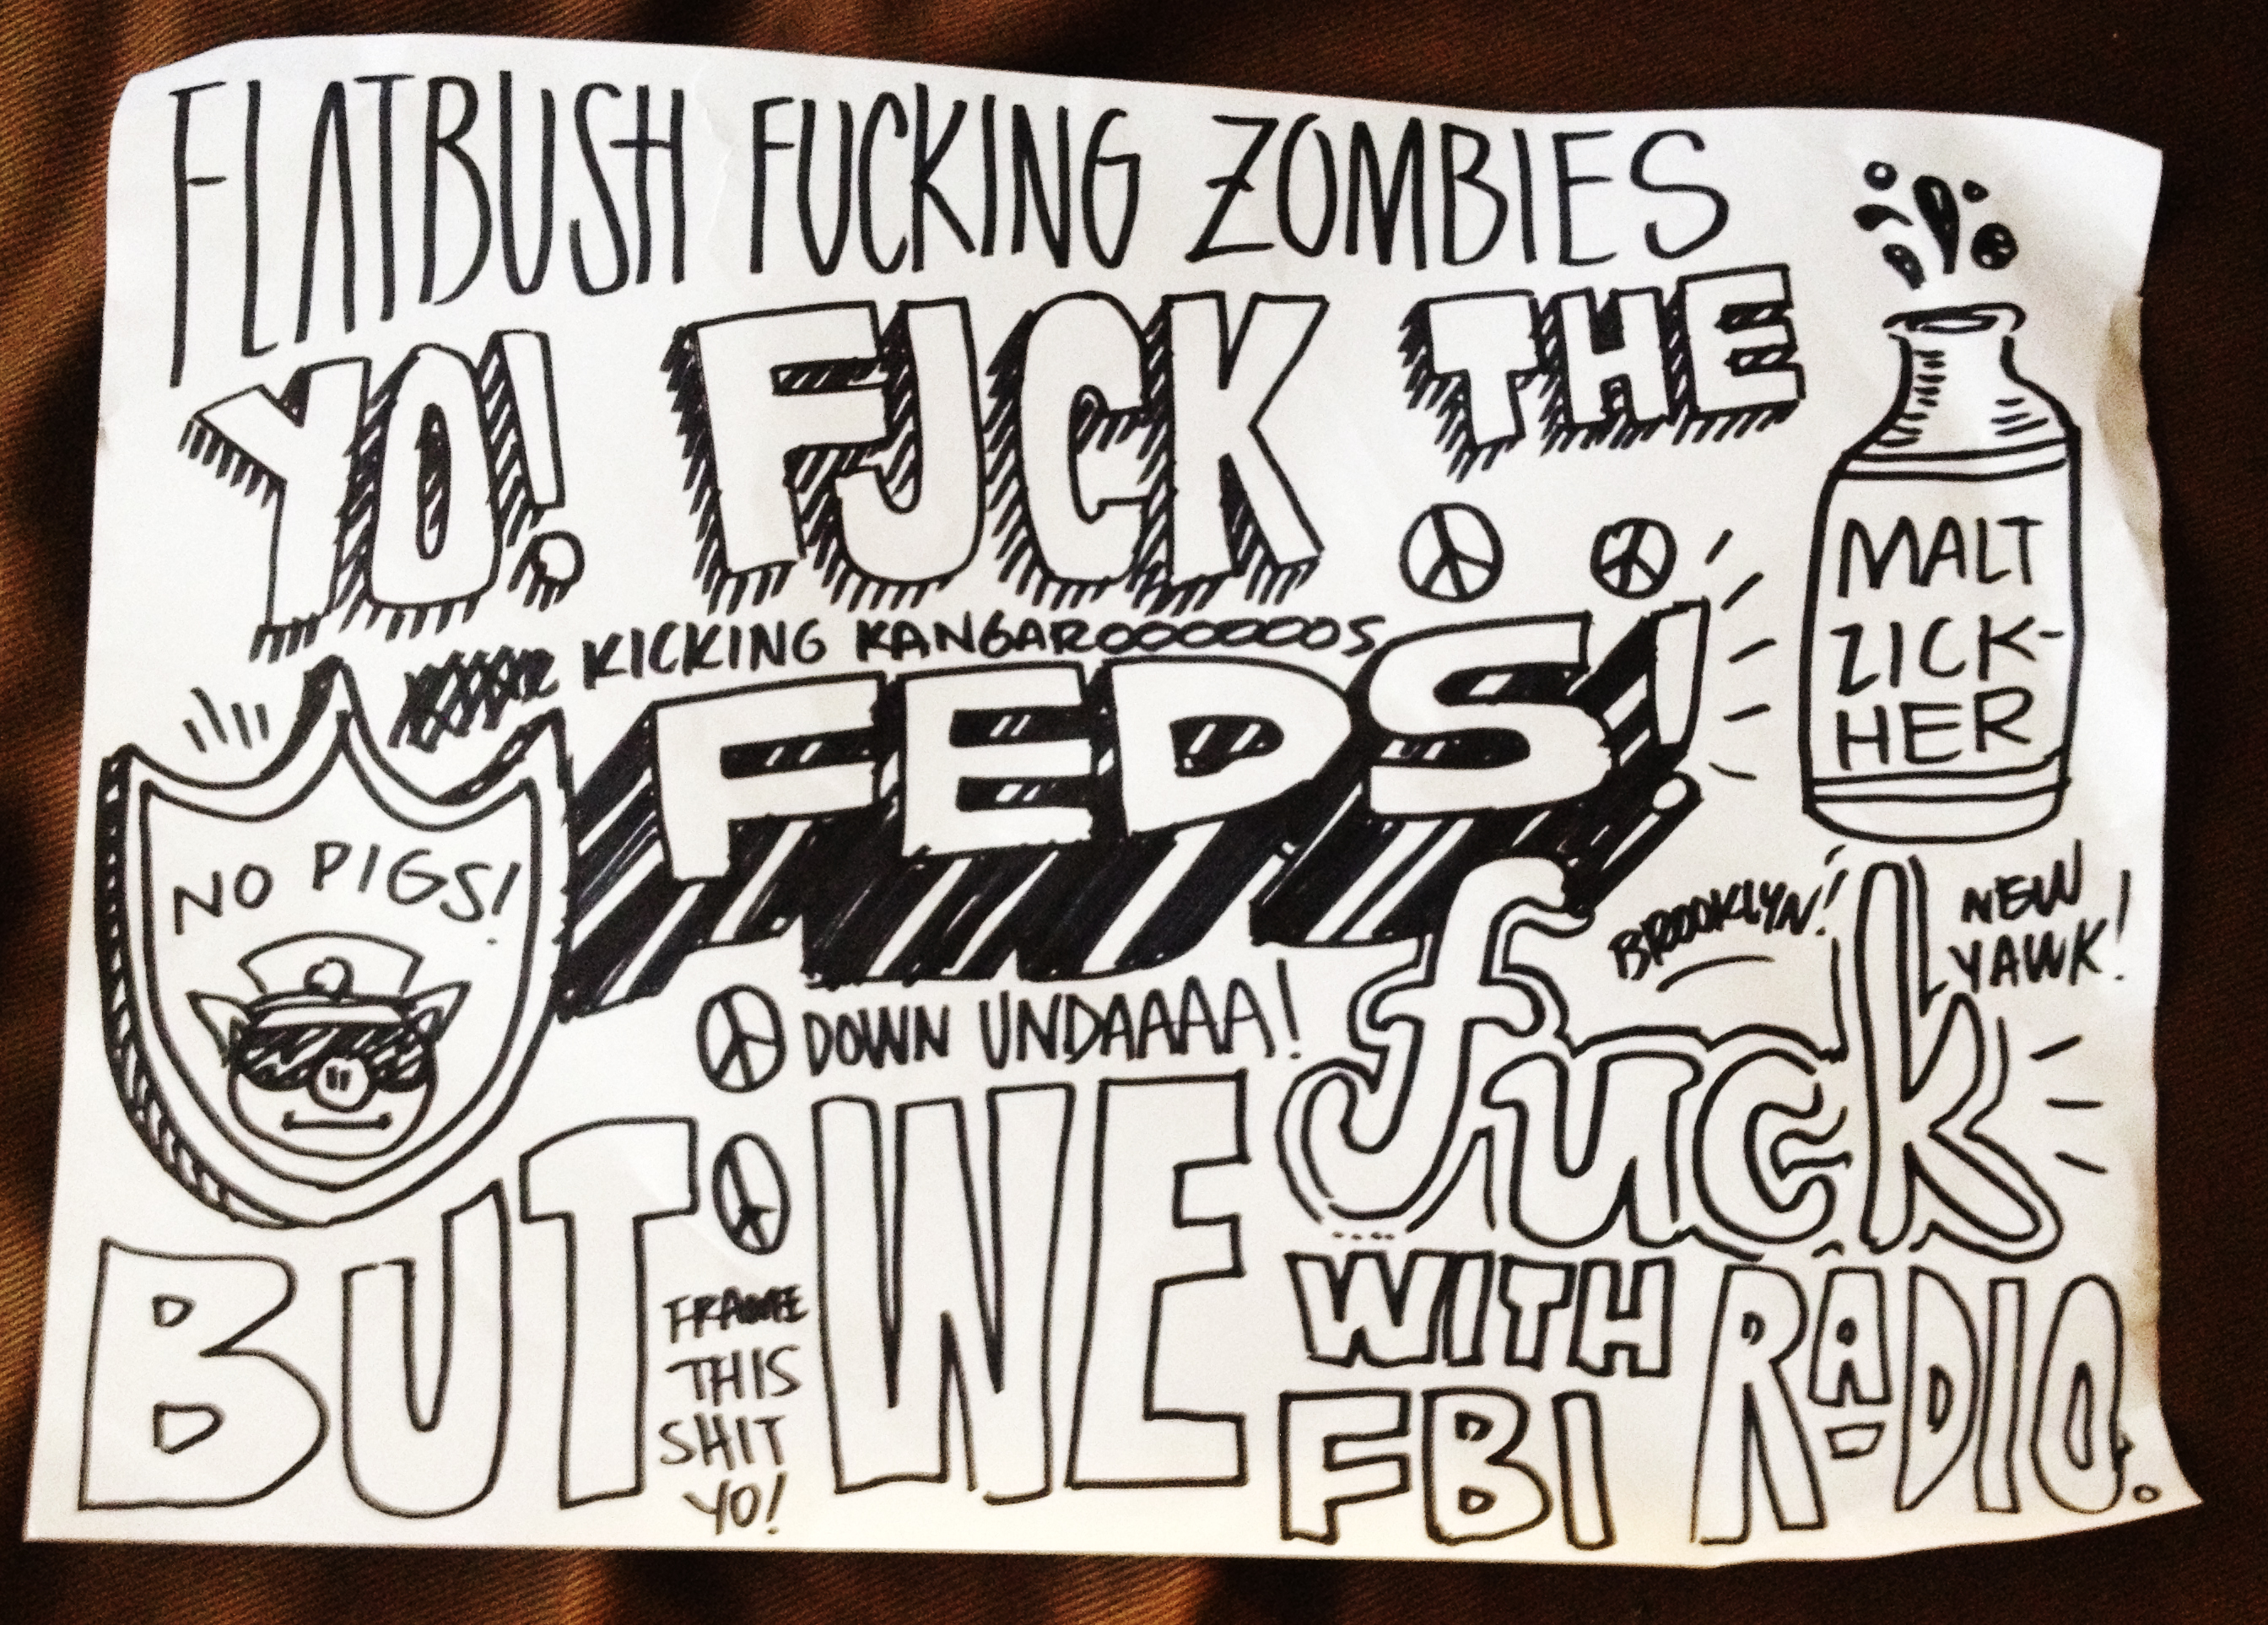 FLATBUSH FUCKING ZOMBIES
YO! FJCK THE
KICKING KANGAROOOOOOOS
FEDS!
MALT
ZICK-
HER
NO PIGS!
BROOKLYN!
NEW
YAWK!
DOWN UNDAAAA!
BUT WE fuck
WITH RADIO.
FBI
FRAME
THIS
SHIT
YO!